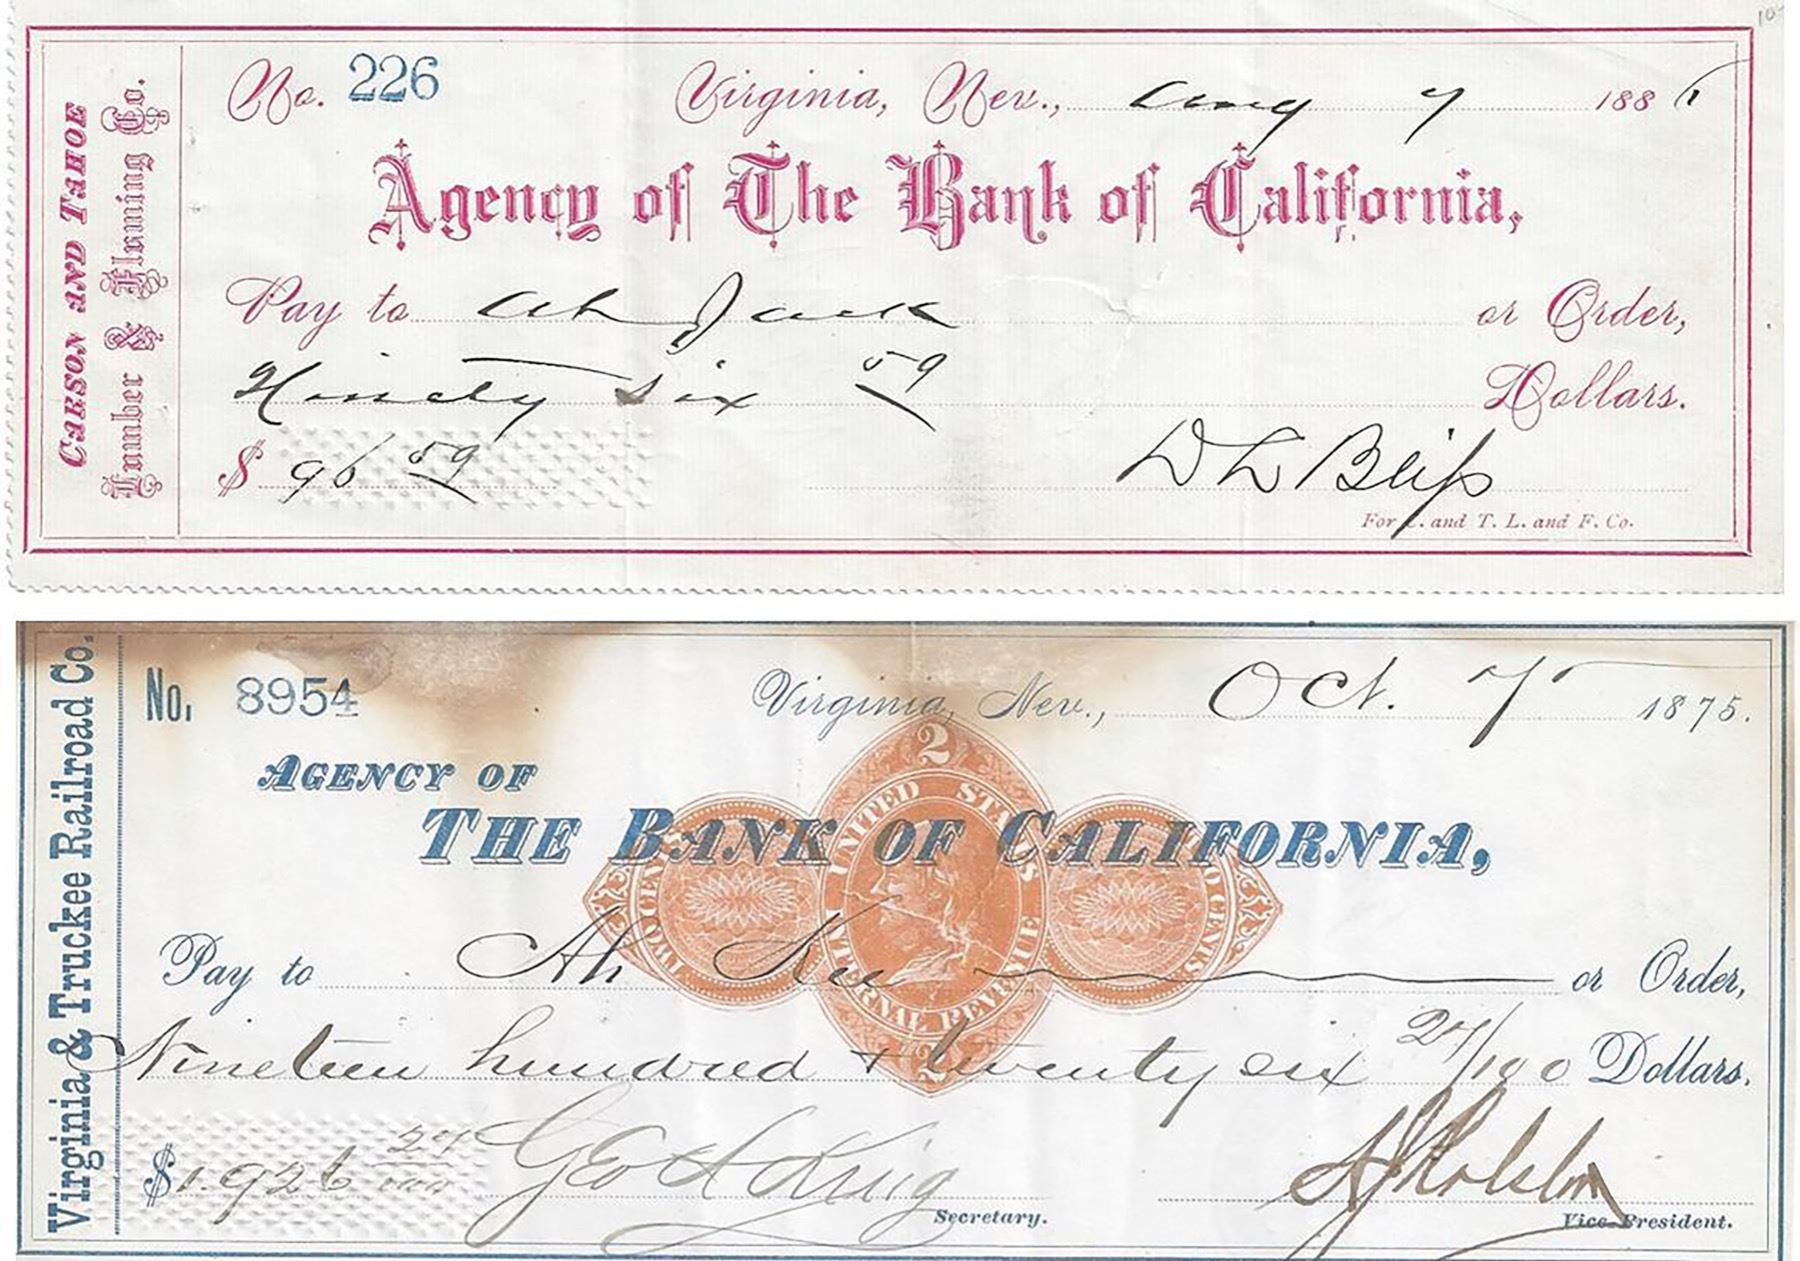 CARSON AND TAHOE
Lumber & Fluming Co.
No. 226
Virginia, Nev., Aug 7 188
Agency of The Bank of California,
Pay to Ah Jack or Order,
Ninety six 59 Dollars.
$ 96 59
D L Bliss
For C. and T. L. and F. Co.
Virginia & Truckee Railroad Co.
No. 8954
Virginia, Nev., Oct. 7 1875.
AGENCY OF
THE BANK OF CALIFORNIA,
2
UNITED STATES
INTERNAL REVENUE
TWO CENTS
2
Pay to Ah Kee or Order,
Nineteen hundred + twenty six 24/100 Dollars.
$1.926 24/100
Geo A King
Secretary.
Vice-President.